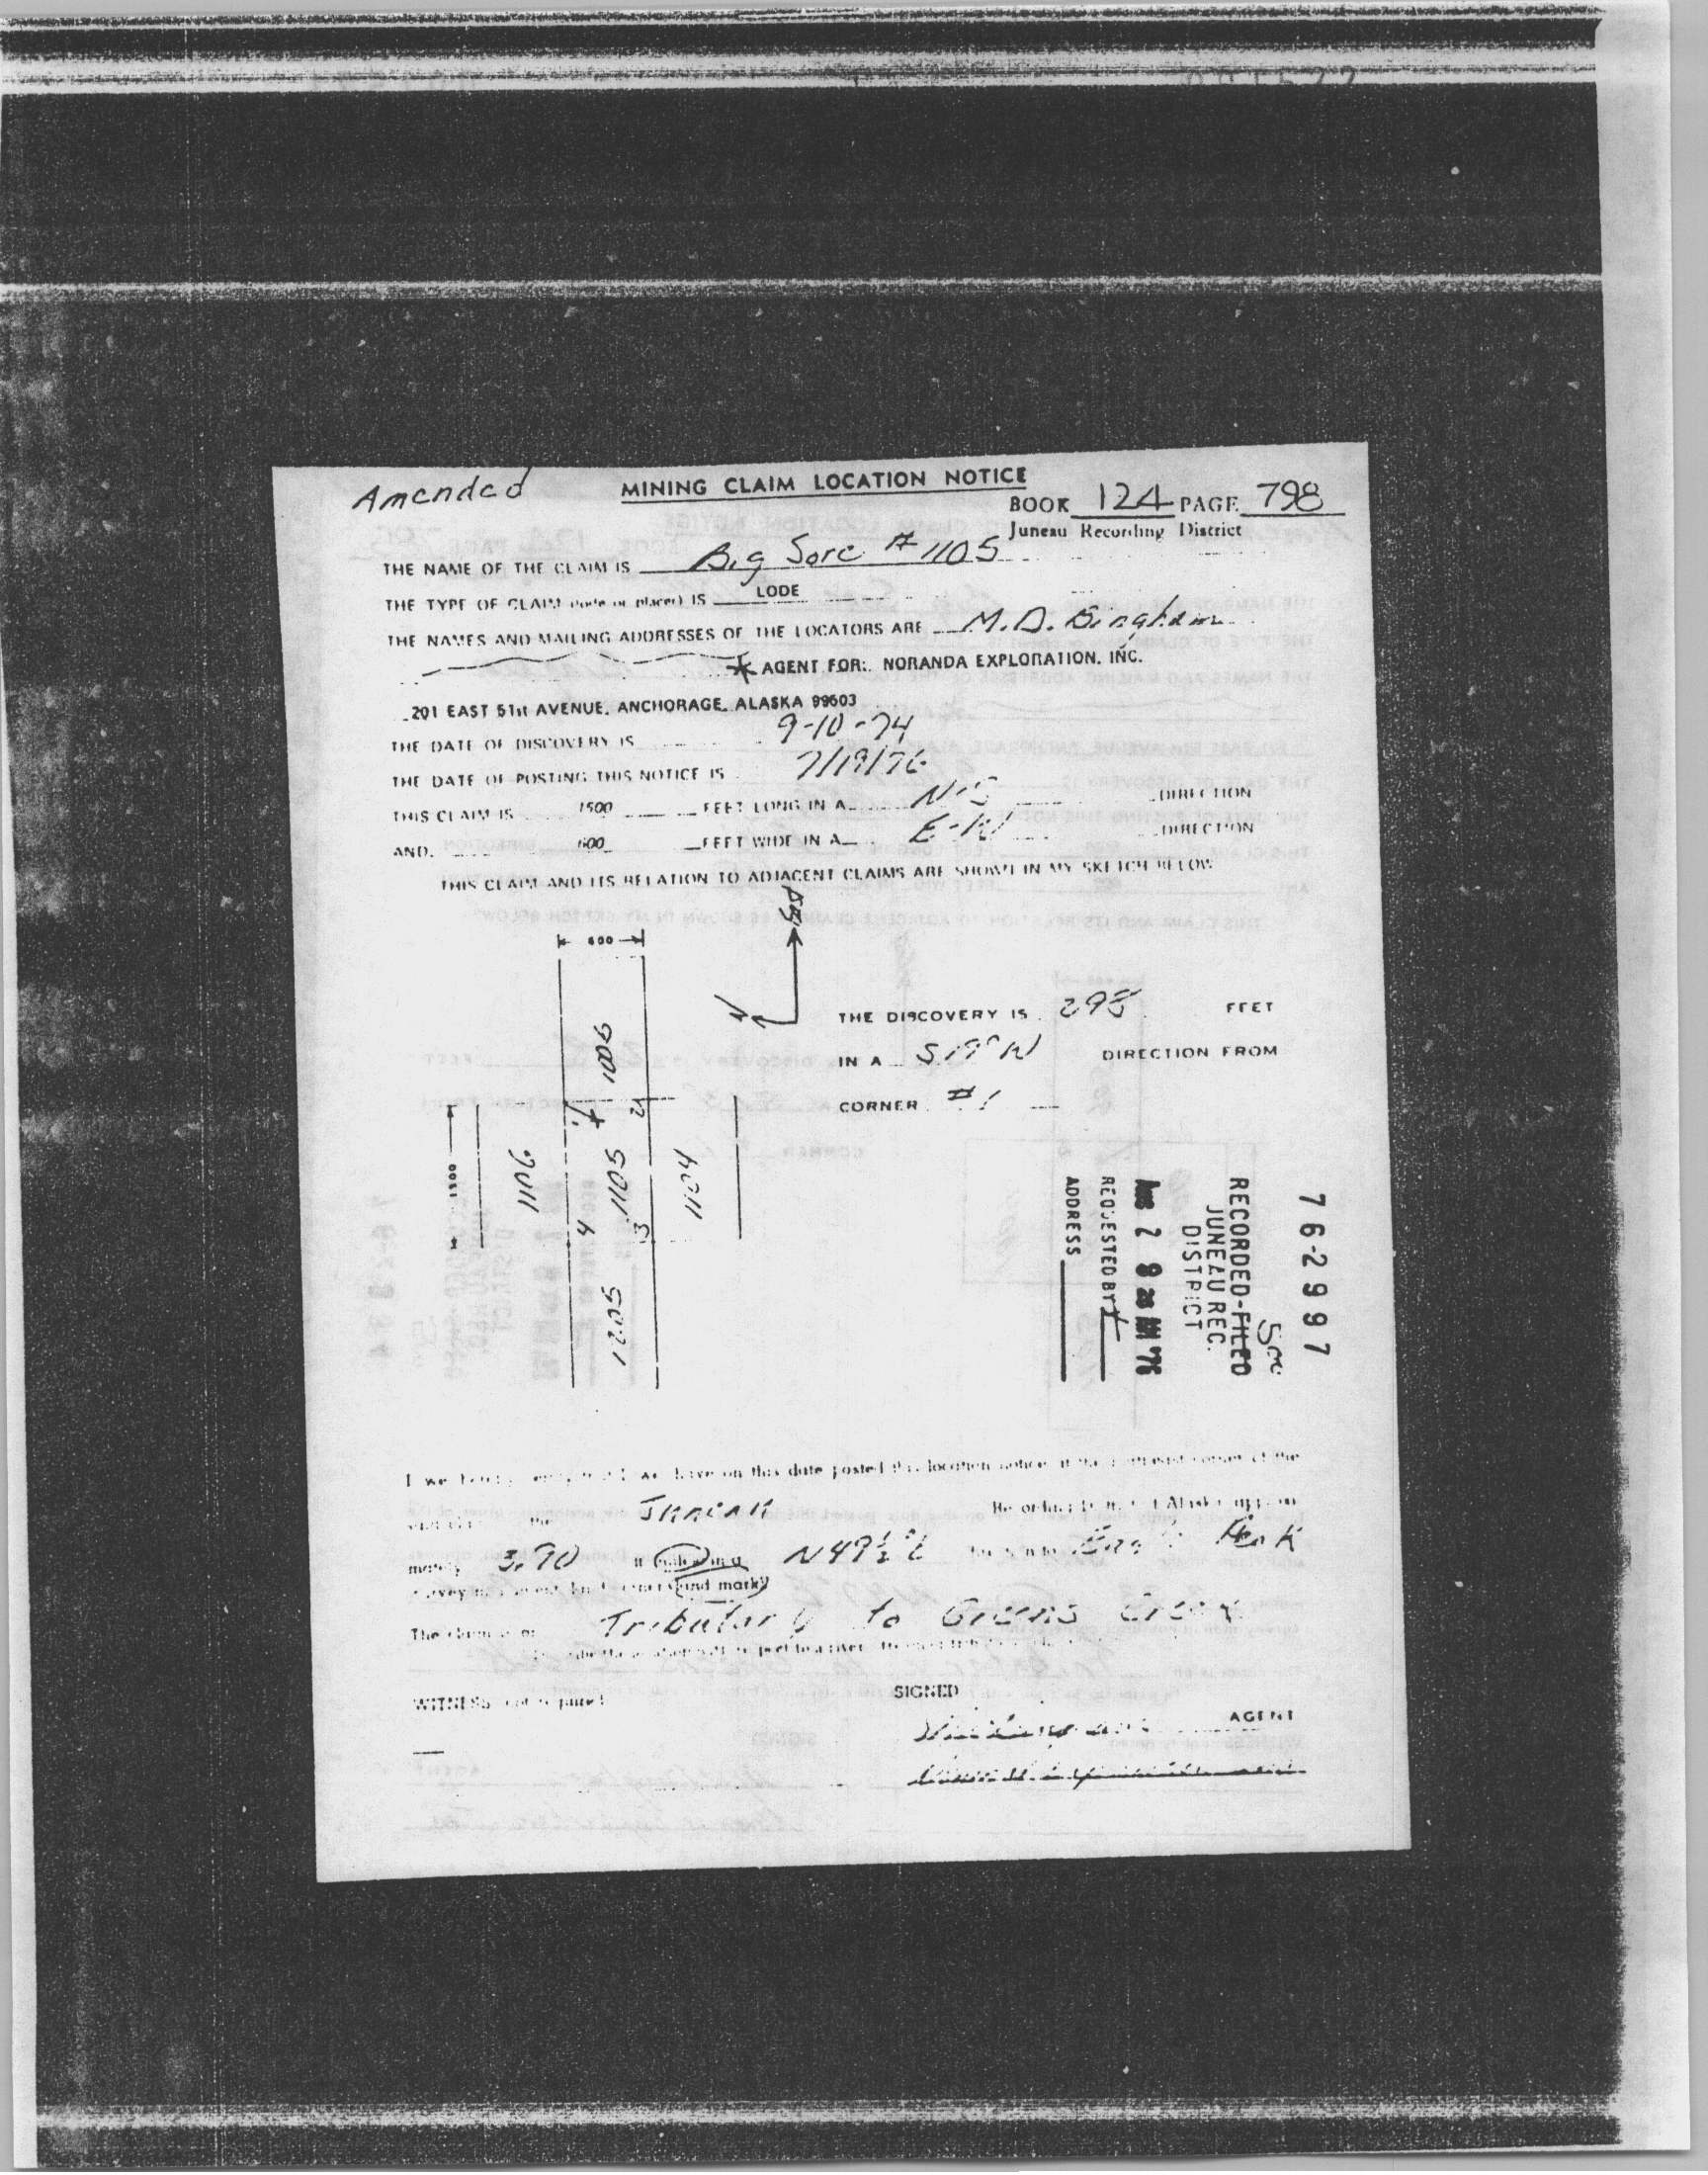 Amended
MINING CLAIM LOCATION NOTICE
BOOK 124 PAGE 798
Juneau Recording District
THE NAME OF THE CLAIM IS Big Sore # 1105
THE TYPE OF CLAIM (lode or placer) IS LODE
THE NAMES AND MAILING ADDRESSES OF THE LOCATORS ARE M.D. Bingham
* AGENT FOR: NORANDA EXPLORATION, INC.
201 EAST 51st AVENUE, ANCHORAGE, ALASKA 99503
THE DATE OF DISCOVERY IS 9-10-74
THE DATE OF POSTING THIS NOTICE IS 7/19/76
THIS CLAIM IS 1500 FEET LONG IN A N-S DIRECTION
AND 600 FEET WIDE IN A E-W DIRECTION
THIS CLAIM AND ITS RELATION TO ADJACENT CLAIMS ARE SHOWN IN MY SKETCH BELOW
600
N
THE DISCOVERY IS 298 FEET
IN A S19°W DIRECTION FROM
CORNER #1
1005
1
2
1500
1106
1105
1104
4
3
1205
76-2997
RECORDED-FILED
JUNEAU REC.
DISTRICT
AUG 2 8 28 AM '76
REQUESTED BY
ADDRESS
have on this date posted this location notice at the corner of the
the Juneau Recording District Alaska
3,90 N49½°E Peak
land mark)
The claim is on Tributary to Greens Creek
WITNESS (not required)
SIGNED
AGENT